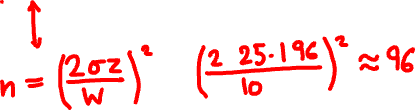 n = (2σz/W)² (2 25·196/10)² ≈ 96